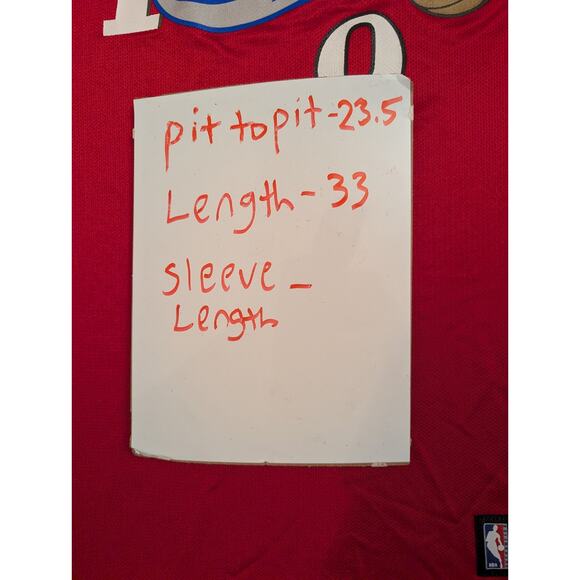 pit to pit - 23.5
Length - 33
sleeve -
Length
NBA